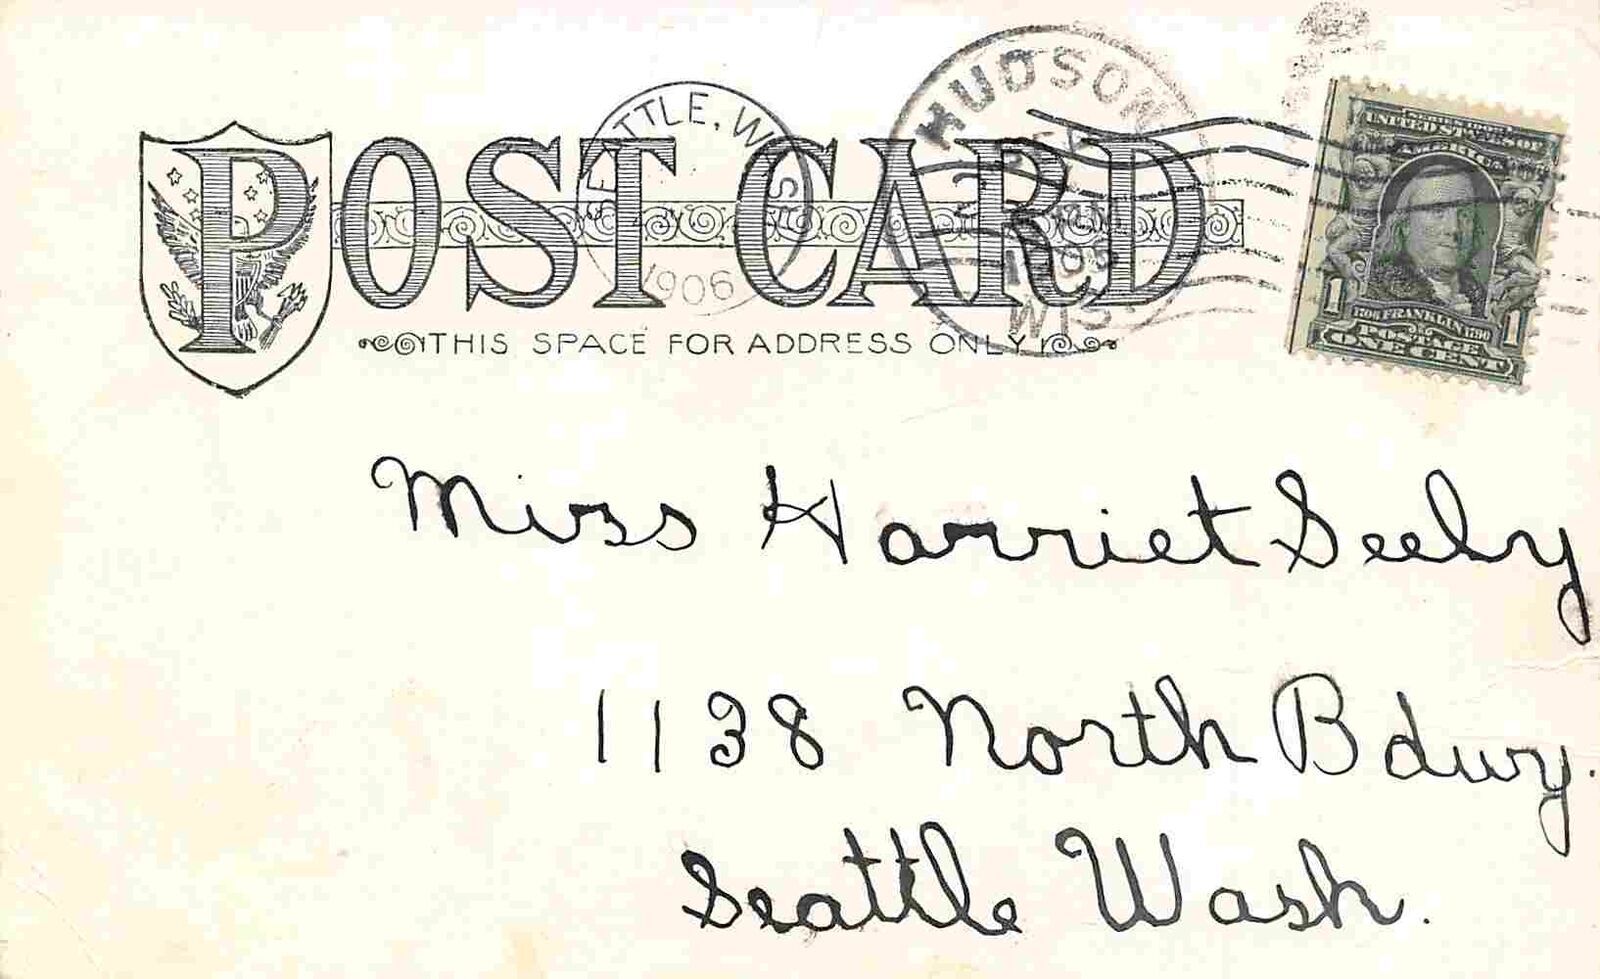 SEATTLE, WASH.
1906
HUDSON
WIS.
UNITED STATES OF
AMERICA
1 1706 FRANKLIN 1790 1
ONE CENT
POST CARD
THIS SPACE FOR ADDRESS ONLY
Miss Harriet Seely
1138 North Bdwy.
Seattle Wash.